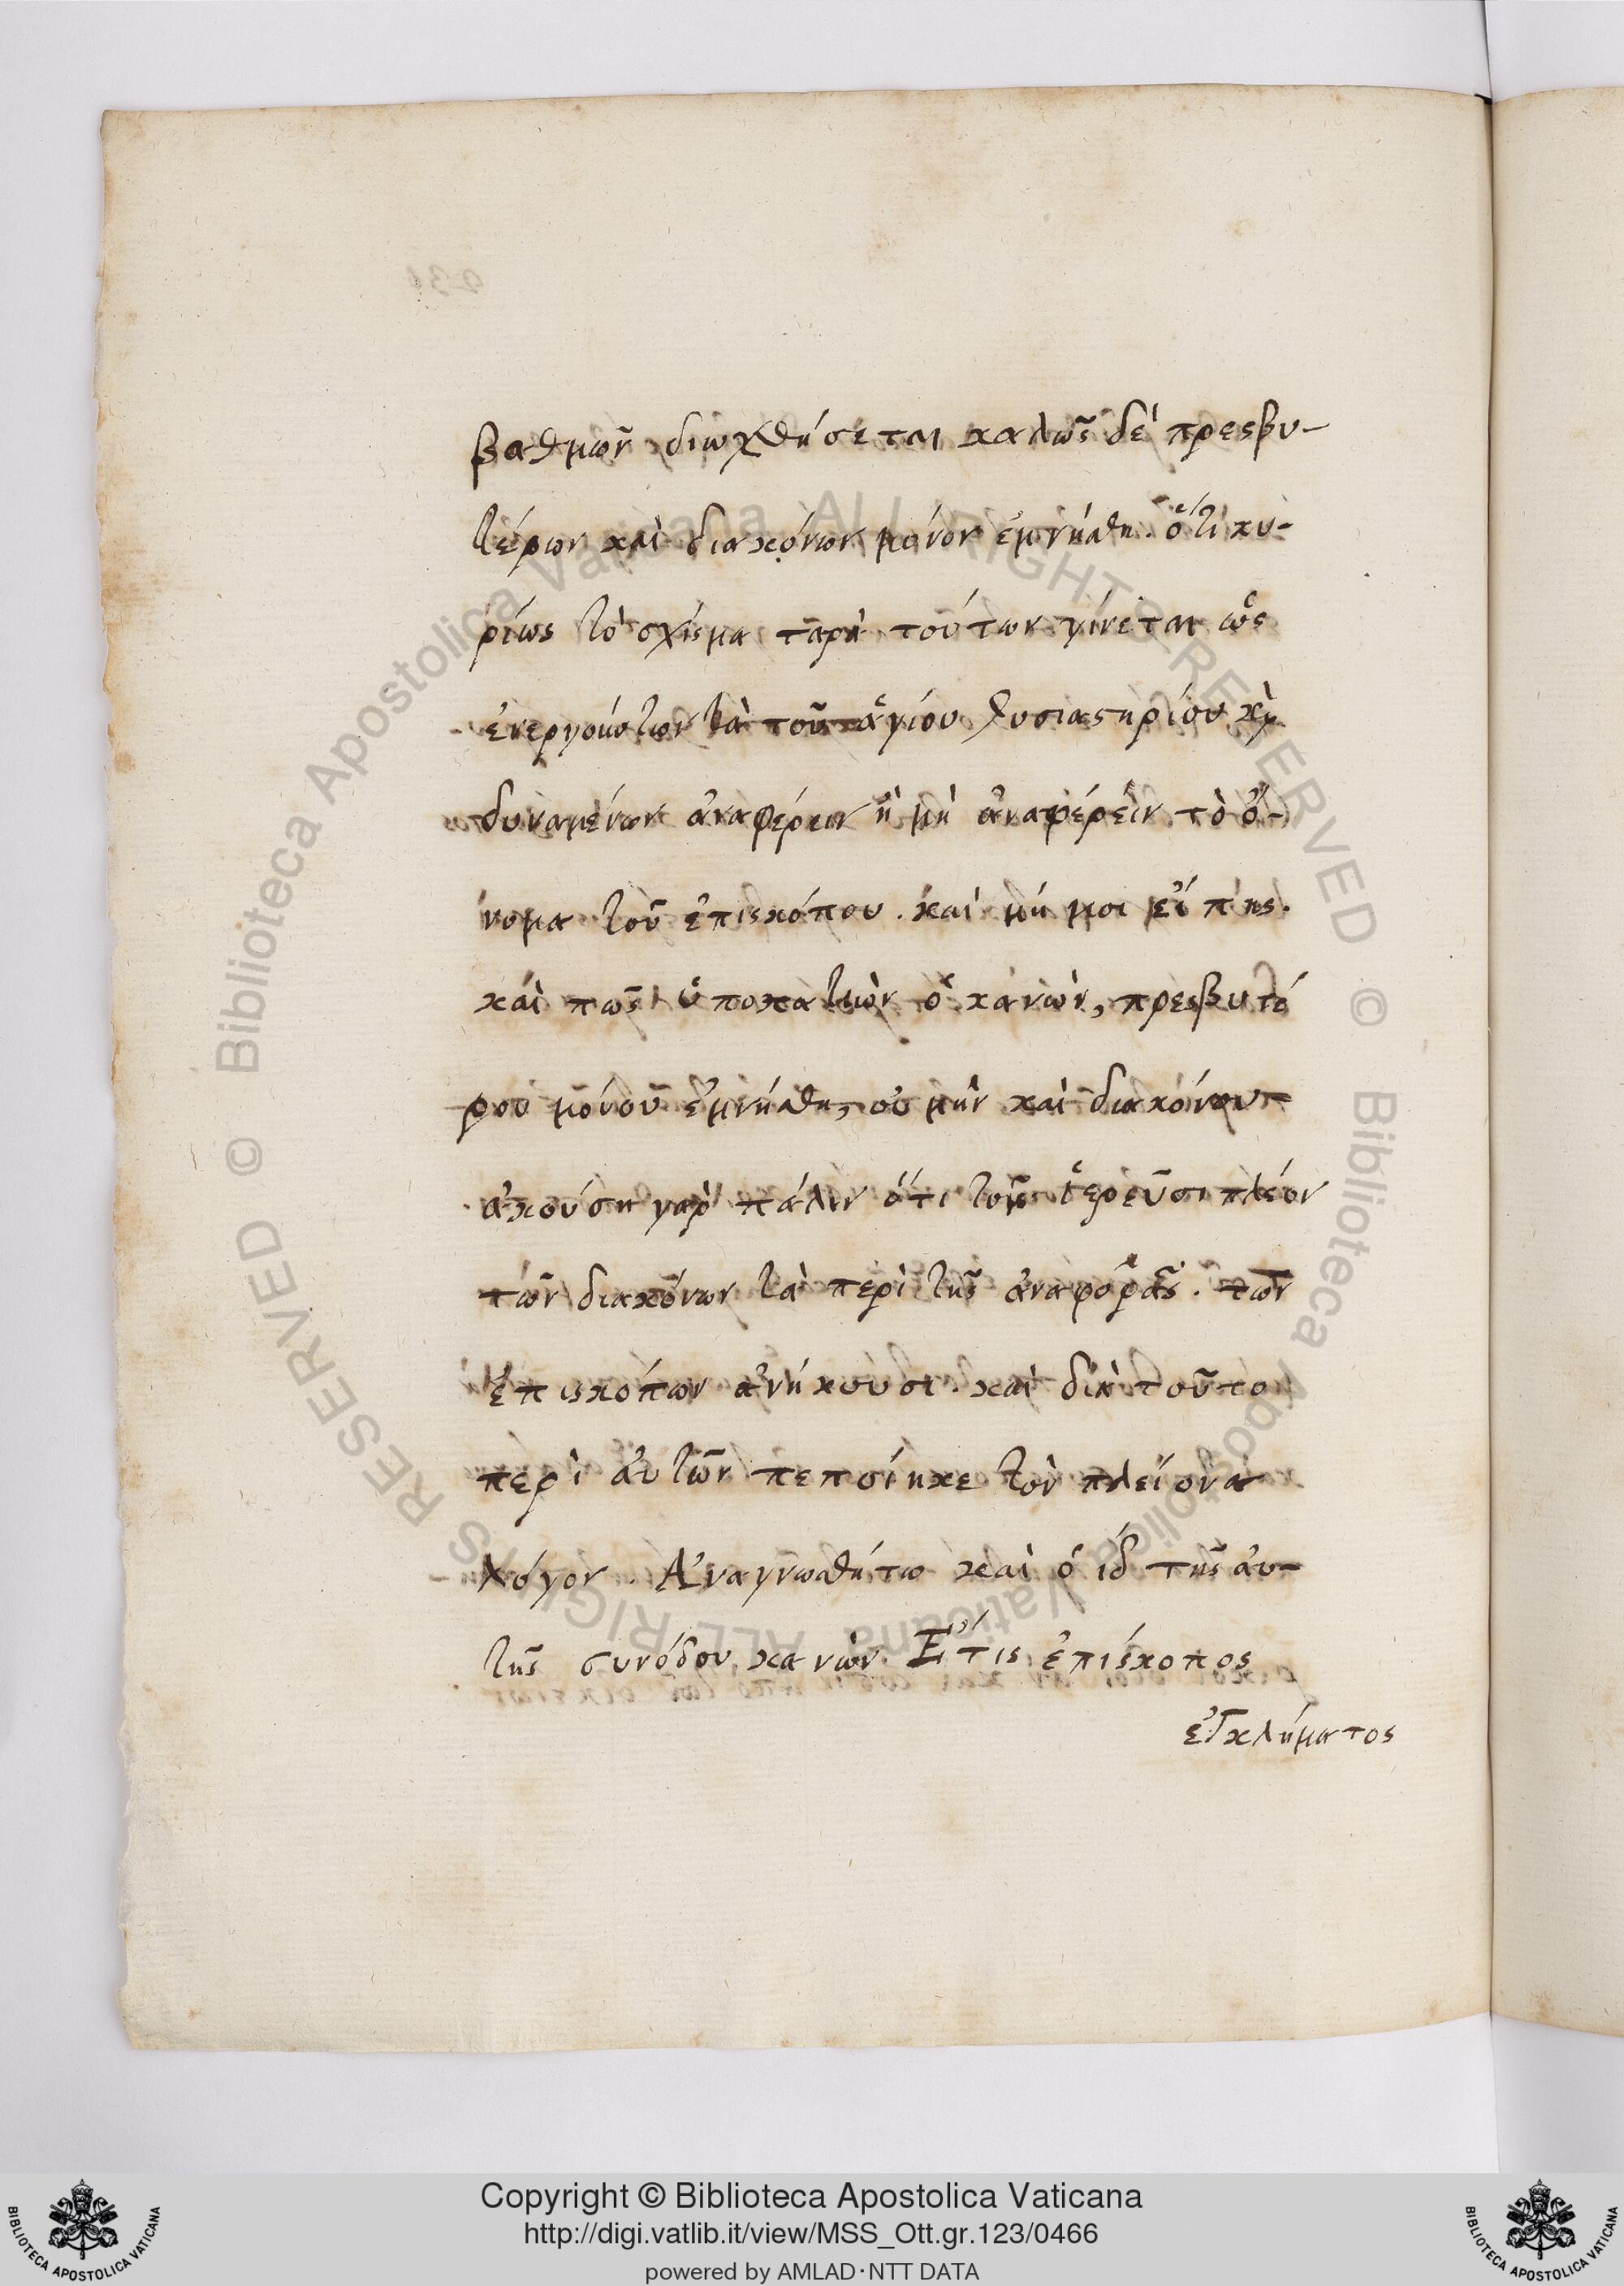 βαθμῶν διωχθήσεται καλῶς δὲ πρεσβυ-
τέρων καὶ διακόνων μόνον ἐμνήσθη. ὅτι κυ-
ρίως τὸ σχίσμα παρὰ τούτων γίνεται ὡς
ἐνεργούντων τὰ τοῦ ἁγίου θυσιαστηρίου κỳ
δυναμένων ἀναφέρειν ἢ μὴ ἀναφέρειν τὸ ὄ-
νομα τοῦ ἐπισκόπου. καὶ μή μοι εἴπῃς.
καὶ πῶς ὑποκατιὼν ὁ κανὼν, πρεσβυτέ
ρου μόνου ἐμνήσθη, οὐ μὴν καὶ διακόνου-
ἀκούσῃ γὰρ πάλιν ὅτι τοῖς ἱερεῦσι πλέον
τῶν διακόνων τὰ περὶ τῆς ἀναφορᾶς. τῶν
ἐπισκόπων ἀνήκουσι. καὶ διὰ τοῦτο
περὶ αὐτῶν πεποίηκε τὸν πλείονα
λόγον. Ἀναγνωσθήτω καὶ ὁ ιδ τῆς αὐ-
τῆς συνόδου κανὼν. Εἴ τις ἐπίσκοπος
ἐγκλήματος
Copyright © Biblioteca Apostolica Vaticana
http://digi.vatlib.it/view/MSS_Ott.gr.123/0466
powered by AMLAD·NTT DATA
BIBLIOTECA APOSTOLICA VATICANA
BIBLIOTECA APOSTOLICA VATICANA
© Biblioteca Apostolica Vaticana ALL RIGHTS RESERVED
© Biblioteca Apostolica Vaticana ALL RIGHTS RESERVED